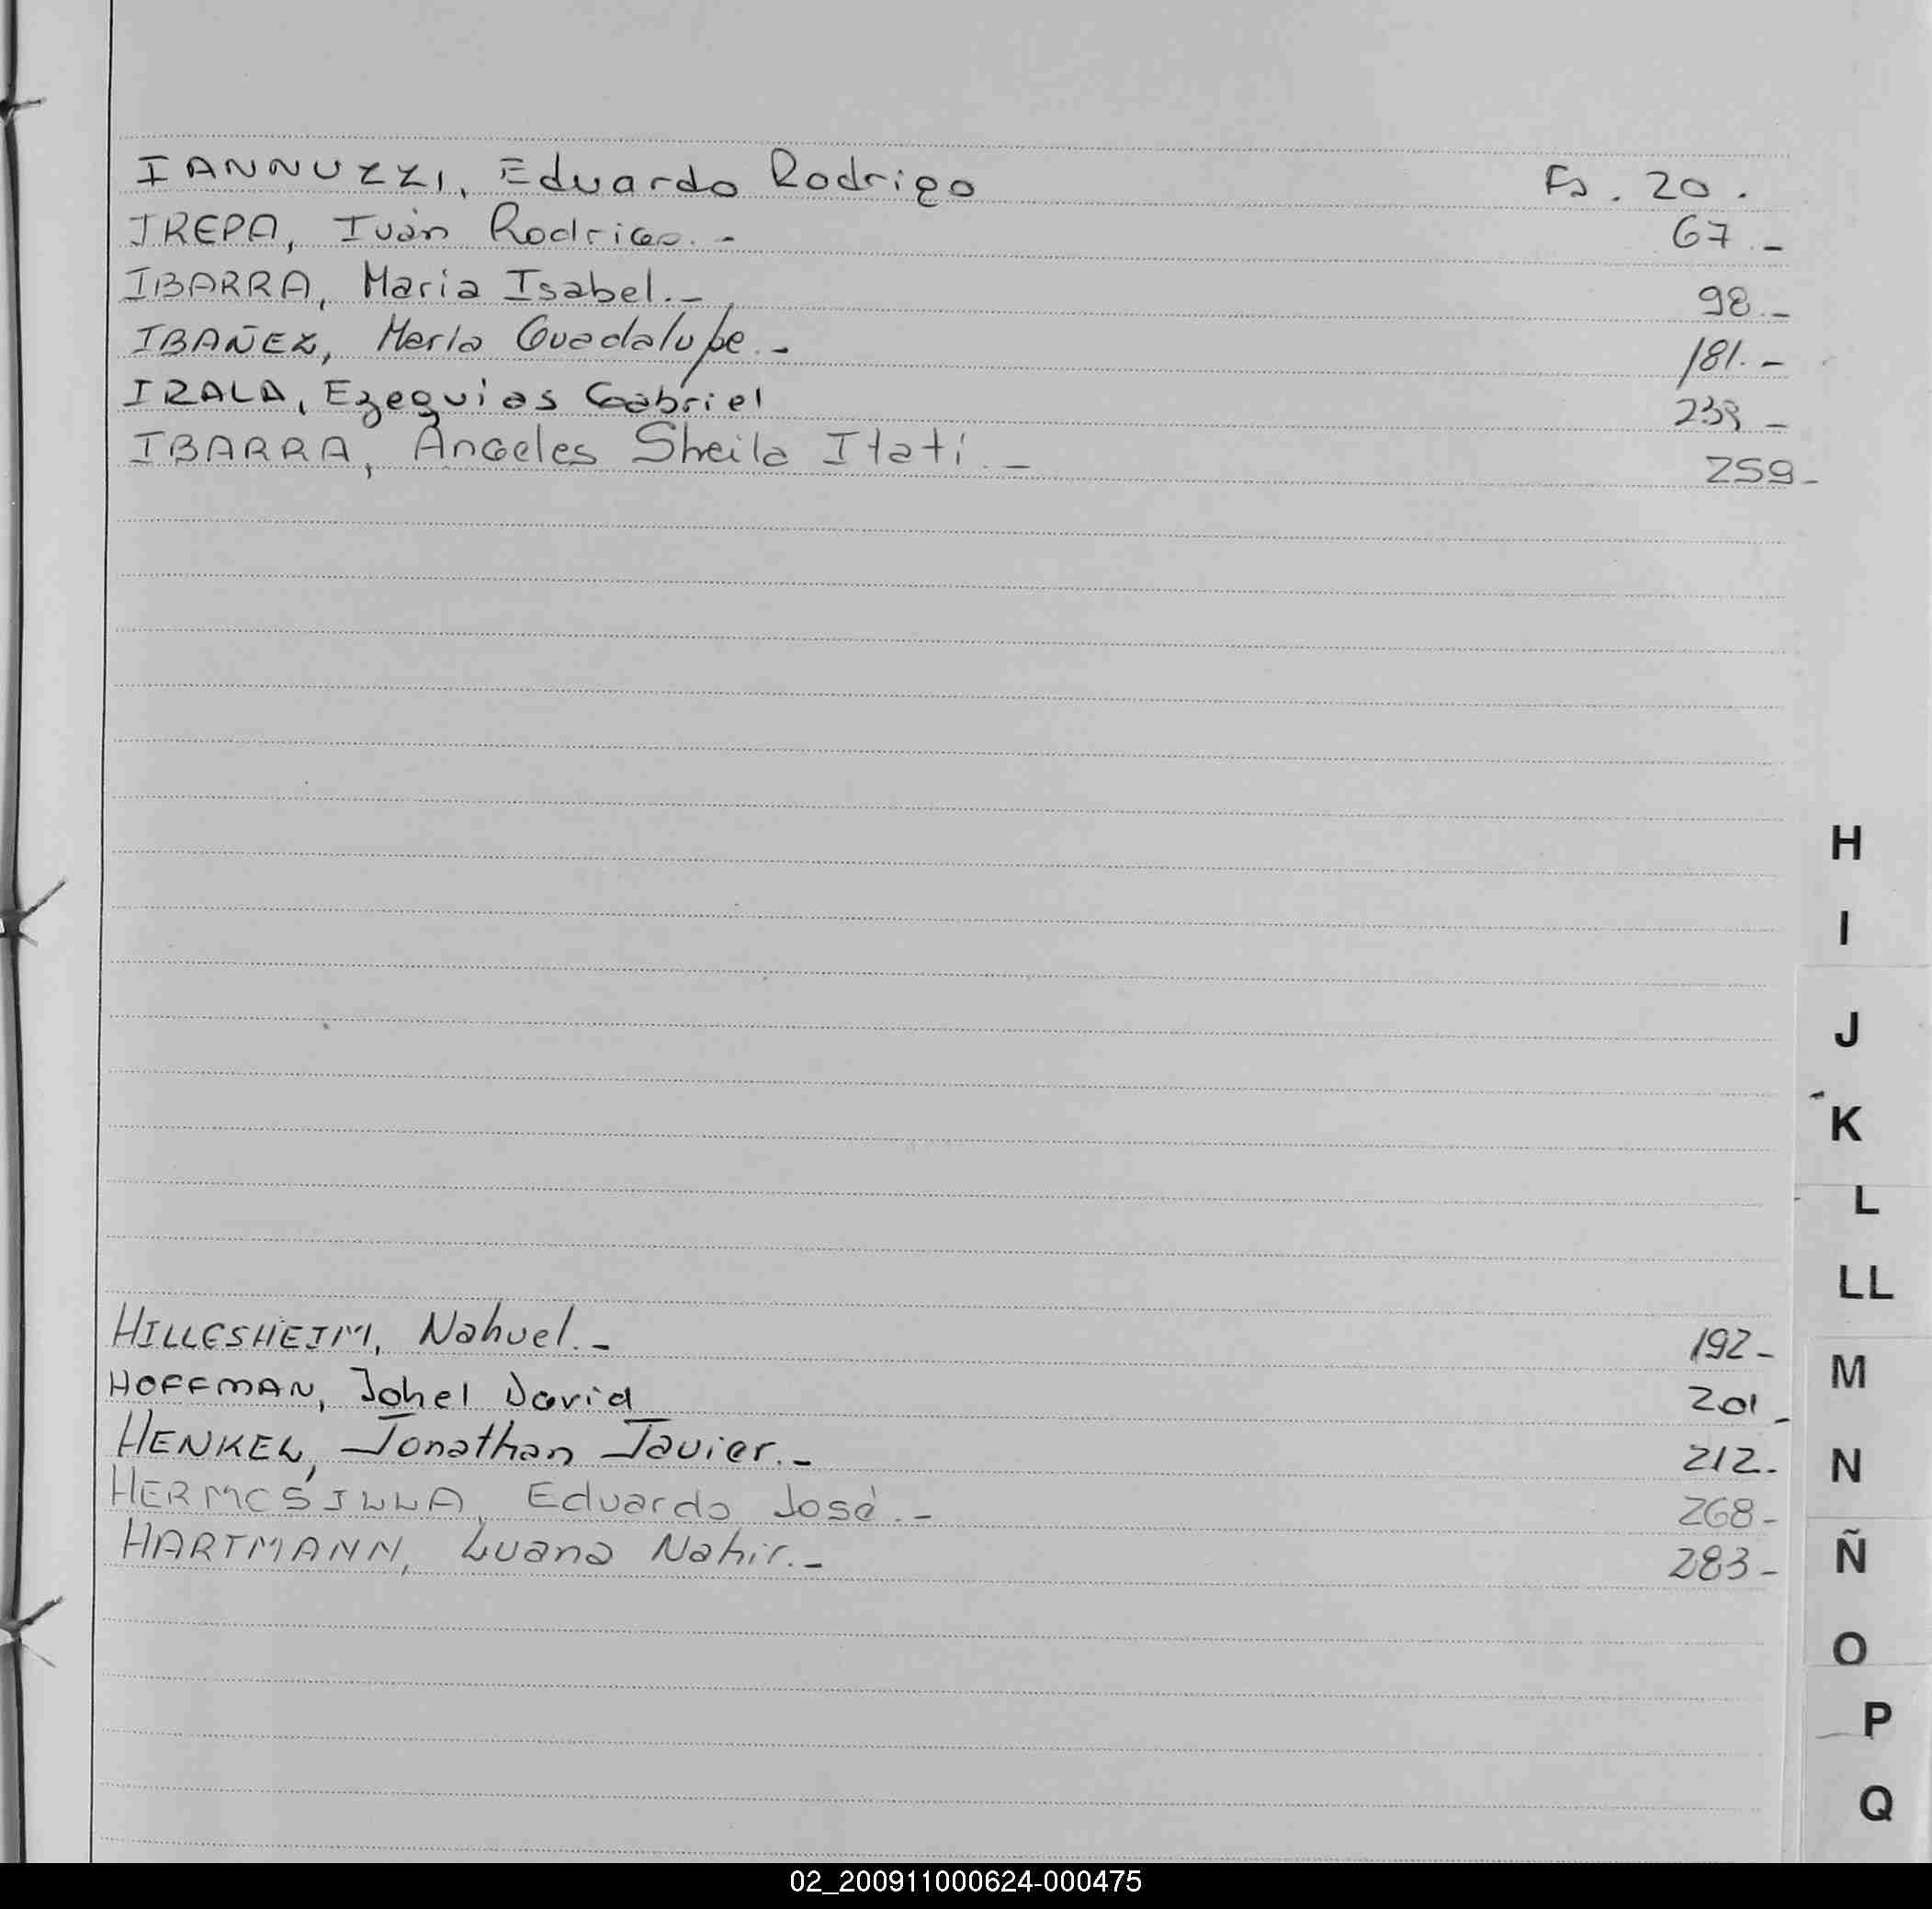 IANNUZZI, Eduardo Rodrigo Fs. 20.
IREPA, Iván Rodrigo.- 67.-
IBARRA, Maria Isabel.- 98.-
IBAÑEZ, María Guadalupe.- 181.-
IRALA, Ezequias Gabriel -
IBARRA, Angeles Sheila Itatí.- 259-
H
I
J
K
L
LL
HILLESHEIM, Nahuel.- 192-
M
HOFFMAN, Johel David 201-
HENKEL, Jonathan Javier.- 212.
N
HERMOSILLA, Eduardo José.- 268-
HARTMANN, Luana Nahir.- 283-
Ñ
O
P
Q
02_200911000624-000475